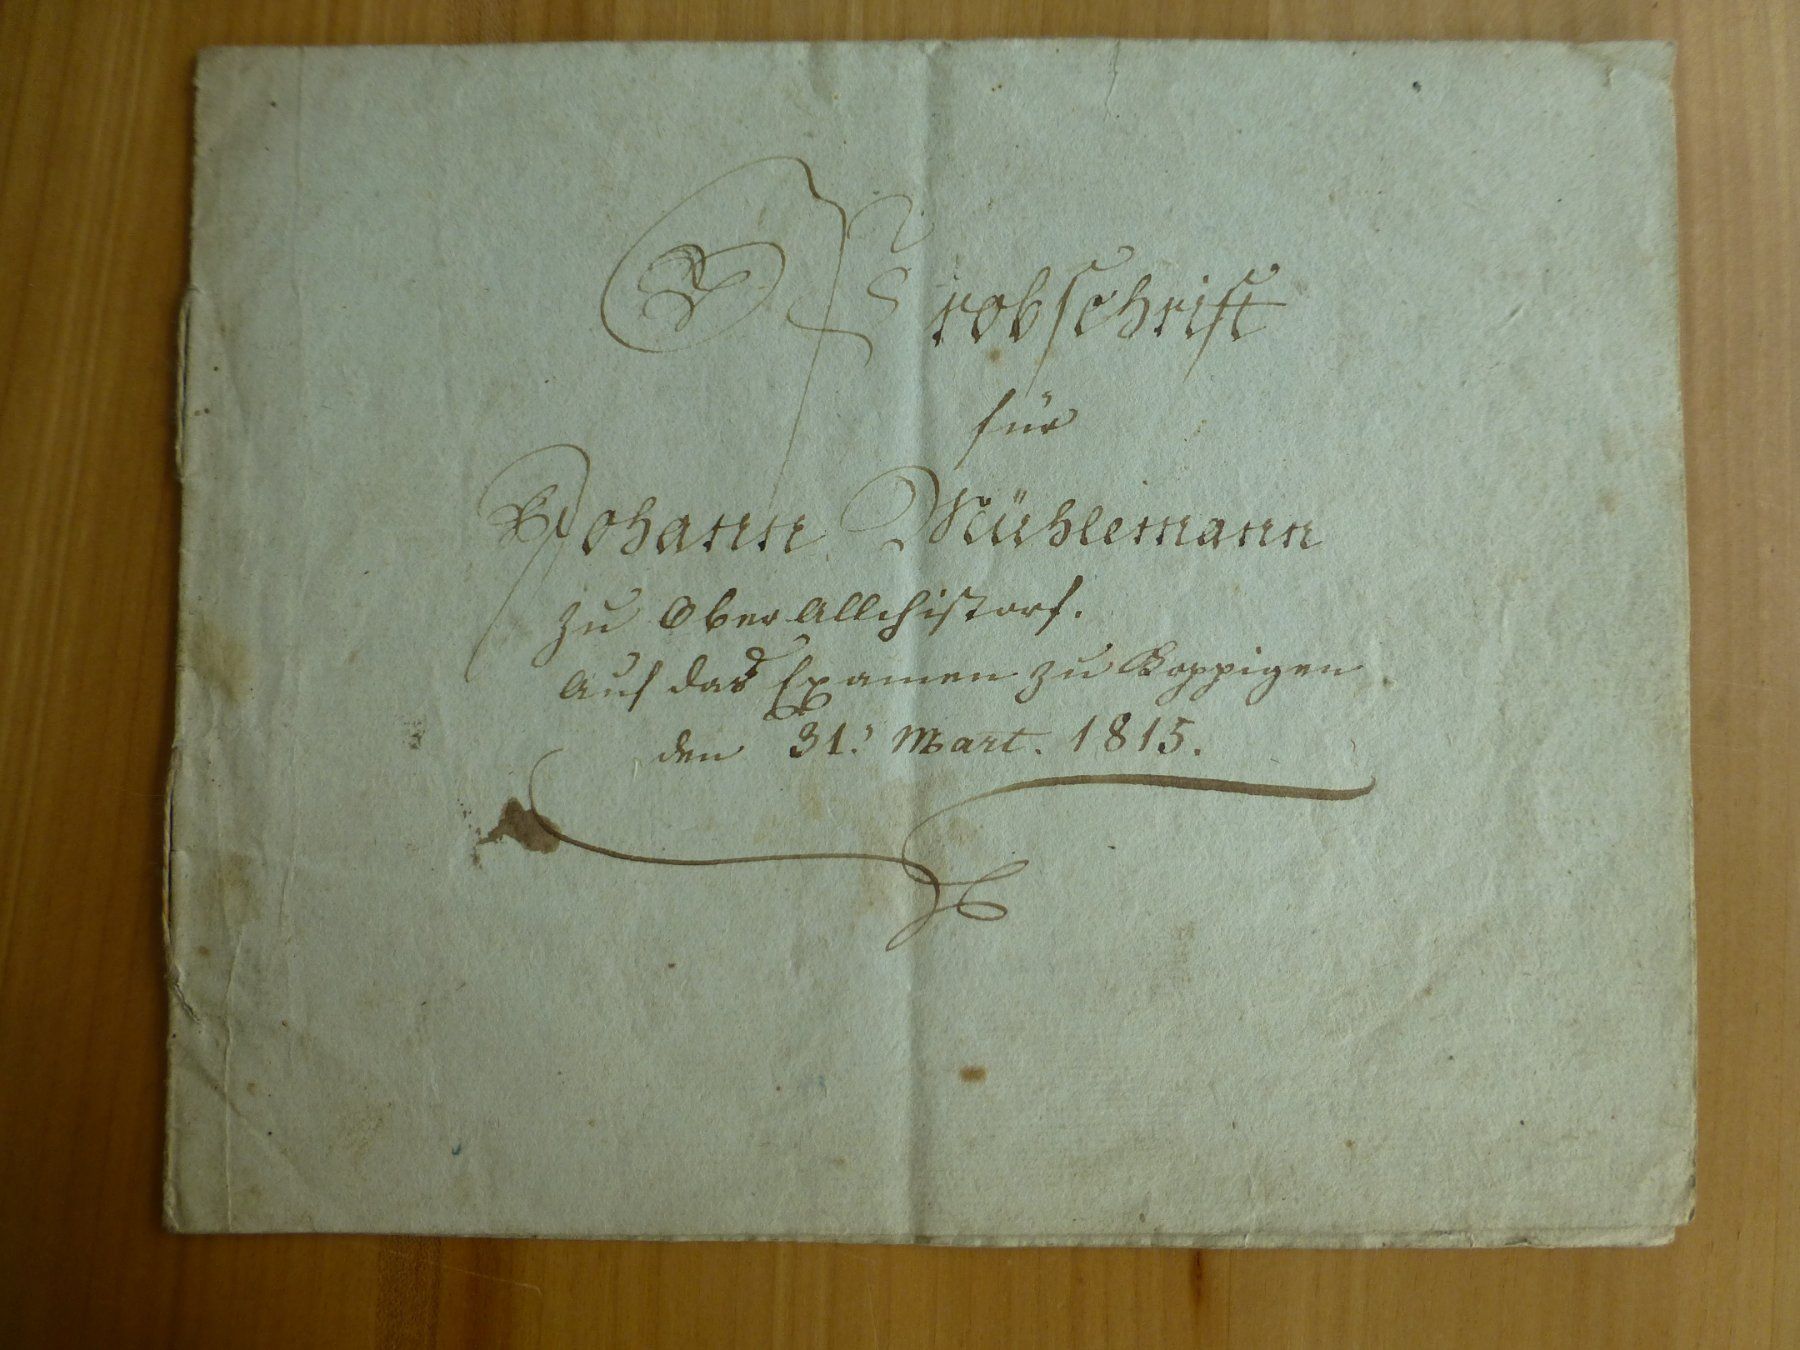 Probschrift
für
Johann Mühlemann
zu Ober Allchistorf.
Auf das Examen zu Koppigen
den 31. Mart. 1815.